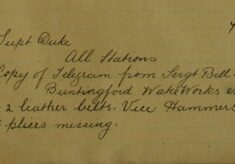 Supt Duke
All Stations
Copy of Telegram from Sergt Bell
Buntingford
2 leather belts. Vice Hammers
pliers missing.